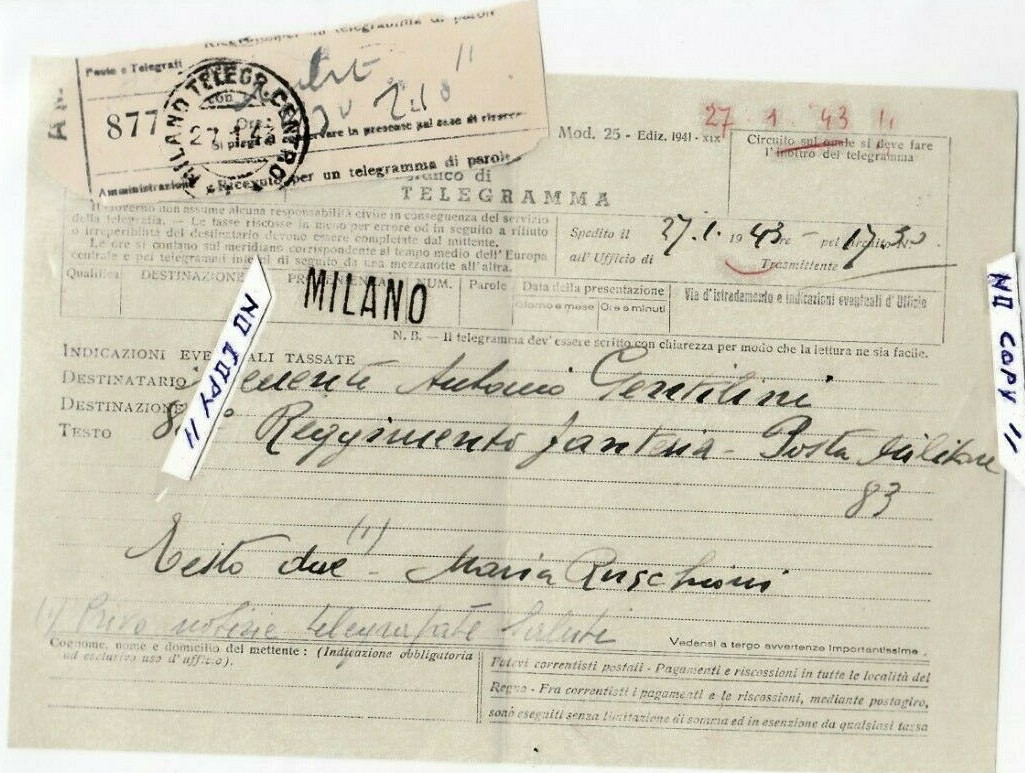 telegramma di parole
Poste e Telegrafi
877
MILANO TELEGR. CENTRO
27.1.43
Amministrazione
Ricevuto per un telegramma di parole
27 1 43
Mod. 25 - Ediz. 1941 - XIX
Circuito sul quale si deve fare
l'inoltro del telegramma
TELEGRAMMA
Il Governo non assume alcuna responsabilità civile in conseguenza del servizio
della telegrafia. — Le tasse riscosse in meno per errore od in seguito a rifiuto
o irreperibilità del destinatario devono essere completate dal mittente.
Le ore si contano sul meridiano corrispondente al tempo medio dell'Europa
centrale e pei telegrammi interni di seguito da una mezzanotte all'altra.
Spedito il 27.1. 1943 ore - pel Circuito N.° 1730
all'Ufficio di Trasmittente
Qualifica DESTINAZIONE NUM. Parole Data della presentazione Via d'istradamento e indicazioni eventuali d'Ufficio
Giorno e mese Ore e minuti
MILANO
N. B. — Il telegramma dev' essere scritto con chiarezza per modo che la lettura ne sia facile.
NO COPY !!
NO COPY !!
INDICAZIONI EVENTUALI TASSATE
DESTINATARIO Tenente Antonio Gentilini
DESTINAZIONE Reggimento fanteria - Posta Militare
TESTO
83
(1)
Testo due - Maria Ruschioni
(1) Privo notizie telegrafate Saluti
Vedensi a tergo avvertenze importantissime.
Cognome, nome e domicilio del mettente: (Indicazione obbligatoria
ad esclusivo uso d'ufficio).
Potevi correntisti postali - Pagamenti e riscossioni in tutte le località del
Regno - Fra correntisti i pagamenti e le riscossioni, mediante postagiro,
sono eseguiti senza limitazione di somma ed in esenzione da qualsiasi tassa